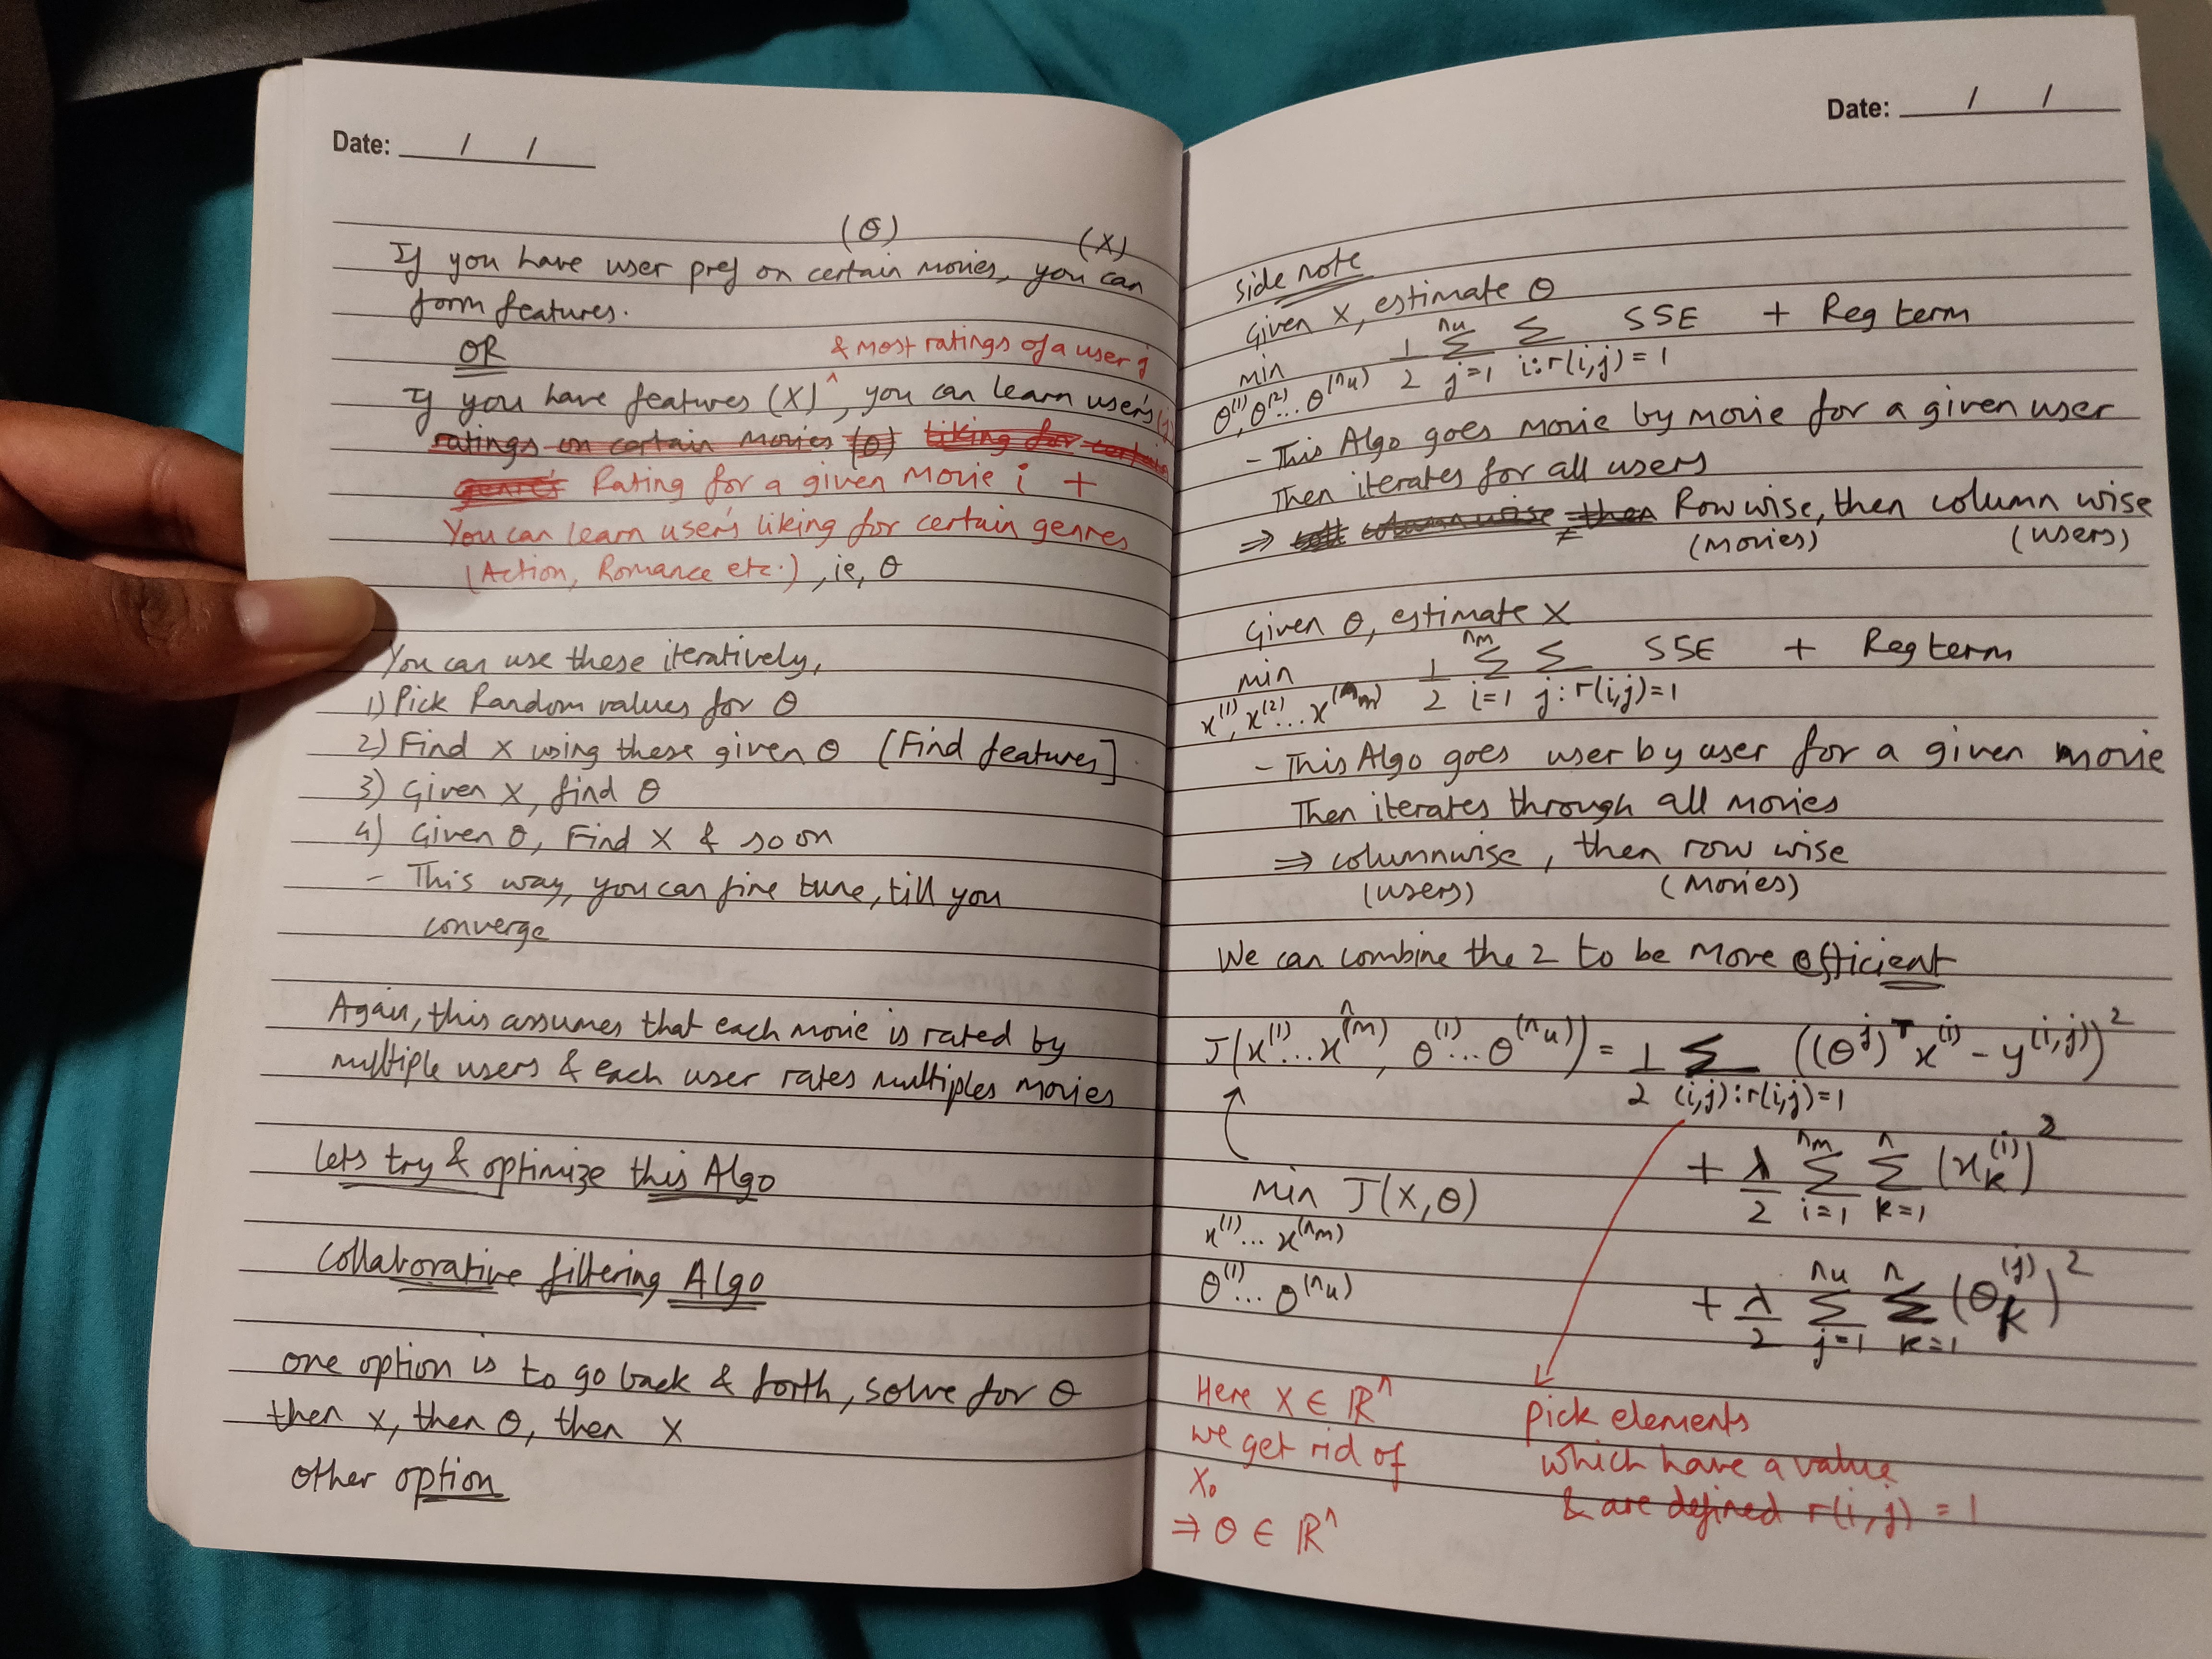 Date: / /
(θ) (X)
If you have user pref on certain movies, you can
form features.
OR
& most ratings of a user j
If you have features (X)^, you can learn user's (j)
ratings on certain movies (θ) liking for certain
genres Rating for a given movie i +
You can learn user's liking for certain genres
(Action, Romance etc.), ie, θ
You can use these iteratively,
1) Pick Random values for θ
2) Find X using these given θ [Find features]
3) Given X, find θ
4) Given θ, Find X & so on
- This way, you can fine tune, till you
converge
Again, this assumes that each movie is rated by
multiple users & each user rates multiples movies
Lets try & optimize this Algo
Collaborative filtering Algo
one option is to go back & forth, solve for θ
then x, then θ, then x
other option
Date: / /
side note
Given X, estimate θ
min θ^(1), θ^(2)... θ^(nu) 1/2 Σ_{j=1}^{nu} Σ_{i:r(i,j)=1} SSE + Reg term
- This Algo goes movie by movie for a given user
Then iterates for all users
⇒ column wise, then Row wise, then column wise
(movies) (users)
Given θ, estimate X
min x^(1), x^(2)... x^(nm) 1/2 Σ_{i=1}^{nm} Σ_{j:r(i,j)=1} SSE + Reg term
- This Algo goes user by user for a given movie
Then iterates through all movies
⇒ columnwise, then row wise
(users) (movies)
We can combine the 2 to be more efficient
J(x^(1)... x^(nm), θ^(1)... θ^(nu)) = 1/2 Σ_{(i,j):r(i,j)=1} ((θ^j)^T x^(i) - y^(i,j))^2
+ λ/2 Σ_{i=1}^{nm} Σ_{k=1}^{n} (x_k^(i))^2
min J(X, θ)
x^(1)... x^(nm)
θ^(1)... θ^(nu)
+ λ/2 Σ_{j=1}^{nu} Σ_{k=1}^{n} (θ_k^(j))^2
Here X ∈ ℝ^n
we get rid of
X₀
⇒ θ ∈ ℝ^n
pick elements
which have a value
& are defined r(i,j) = 1